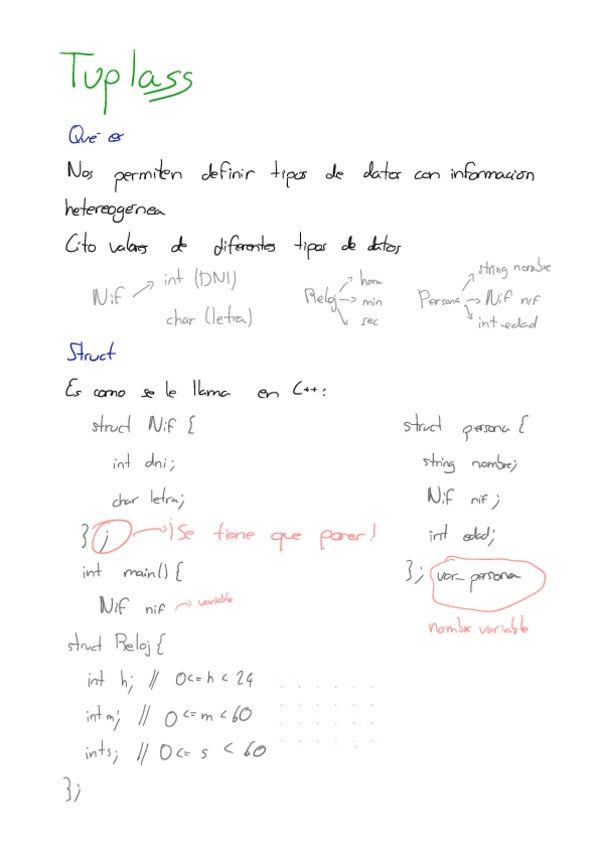 Tuplass
Qué es
Nos permiten definir tipos de datos con información
hetereogénea
Cjto valores de diferentes tipos de datos
Nif → int (DNI)
char (letra)
Reloj → hora
→ min
→ sec
Persona → string nombre
→ Nif nif
→ int edad
Struct
Es como se le llama en C++:
struct Nif {
int dni;
char letra;
}; → ¡Se tiene que poner!
int main() {
Nif nif → variable
struct persona {
string nombre;
Nif nif;
int edad;
}; var_persona
nombre variable
struct Reloj {
int h; // 0<=h<24
int m; // 0<=m<60
int s; // 0<= s < 60
};